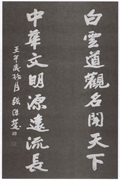 白雲道觀名聞天下
中華文明源遠流長